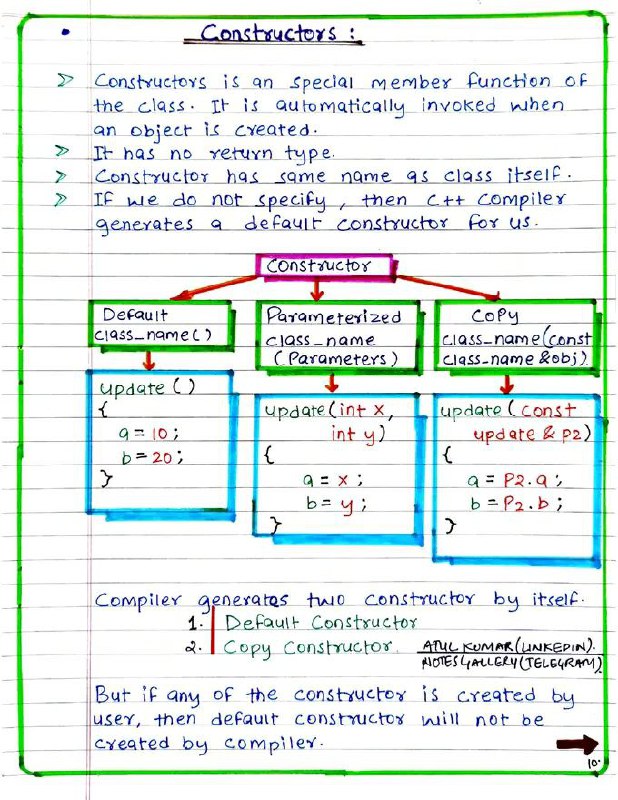 Constructors :
Constructors is an special member function of
the class. It is automatically invoked when
an object is created.
It has no return type.
Constructor has same name as class itself.
If we do not specify, then C++ compiler
generates a default constructor for us.
Constructor
Default
class_name()
Parameterized
class_name
(Parameters)
Copy
class_name(const
class_name &obj)
update ()
{
a = 10 ;
b = 20 ;
}
update(int x,
int y)
{
a = x ;
b = y ;
}
update (const
update & P2)
{
a = P2.a ;
b = P2.b ;
}
Compiler generates two constructor by itself.
1. Default Constructor
2. Copy Constructor.
ATUL KUMAR(LINKEDIN).
NOTESGALLERY(TELEGRAM)
But if any of the constructor is created by
user, then default constructor will not be
created by compiler.
10.